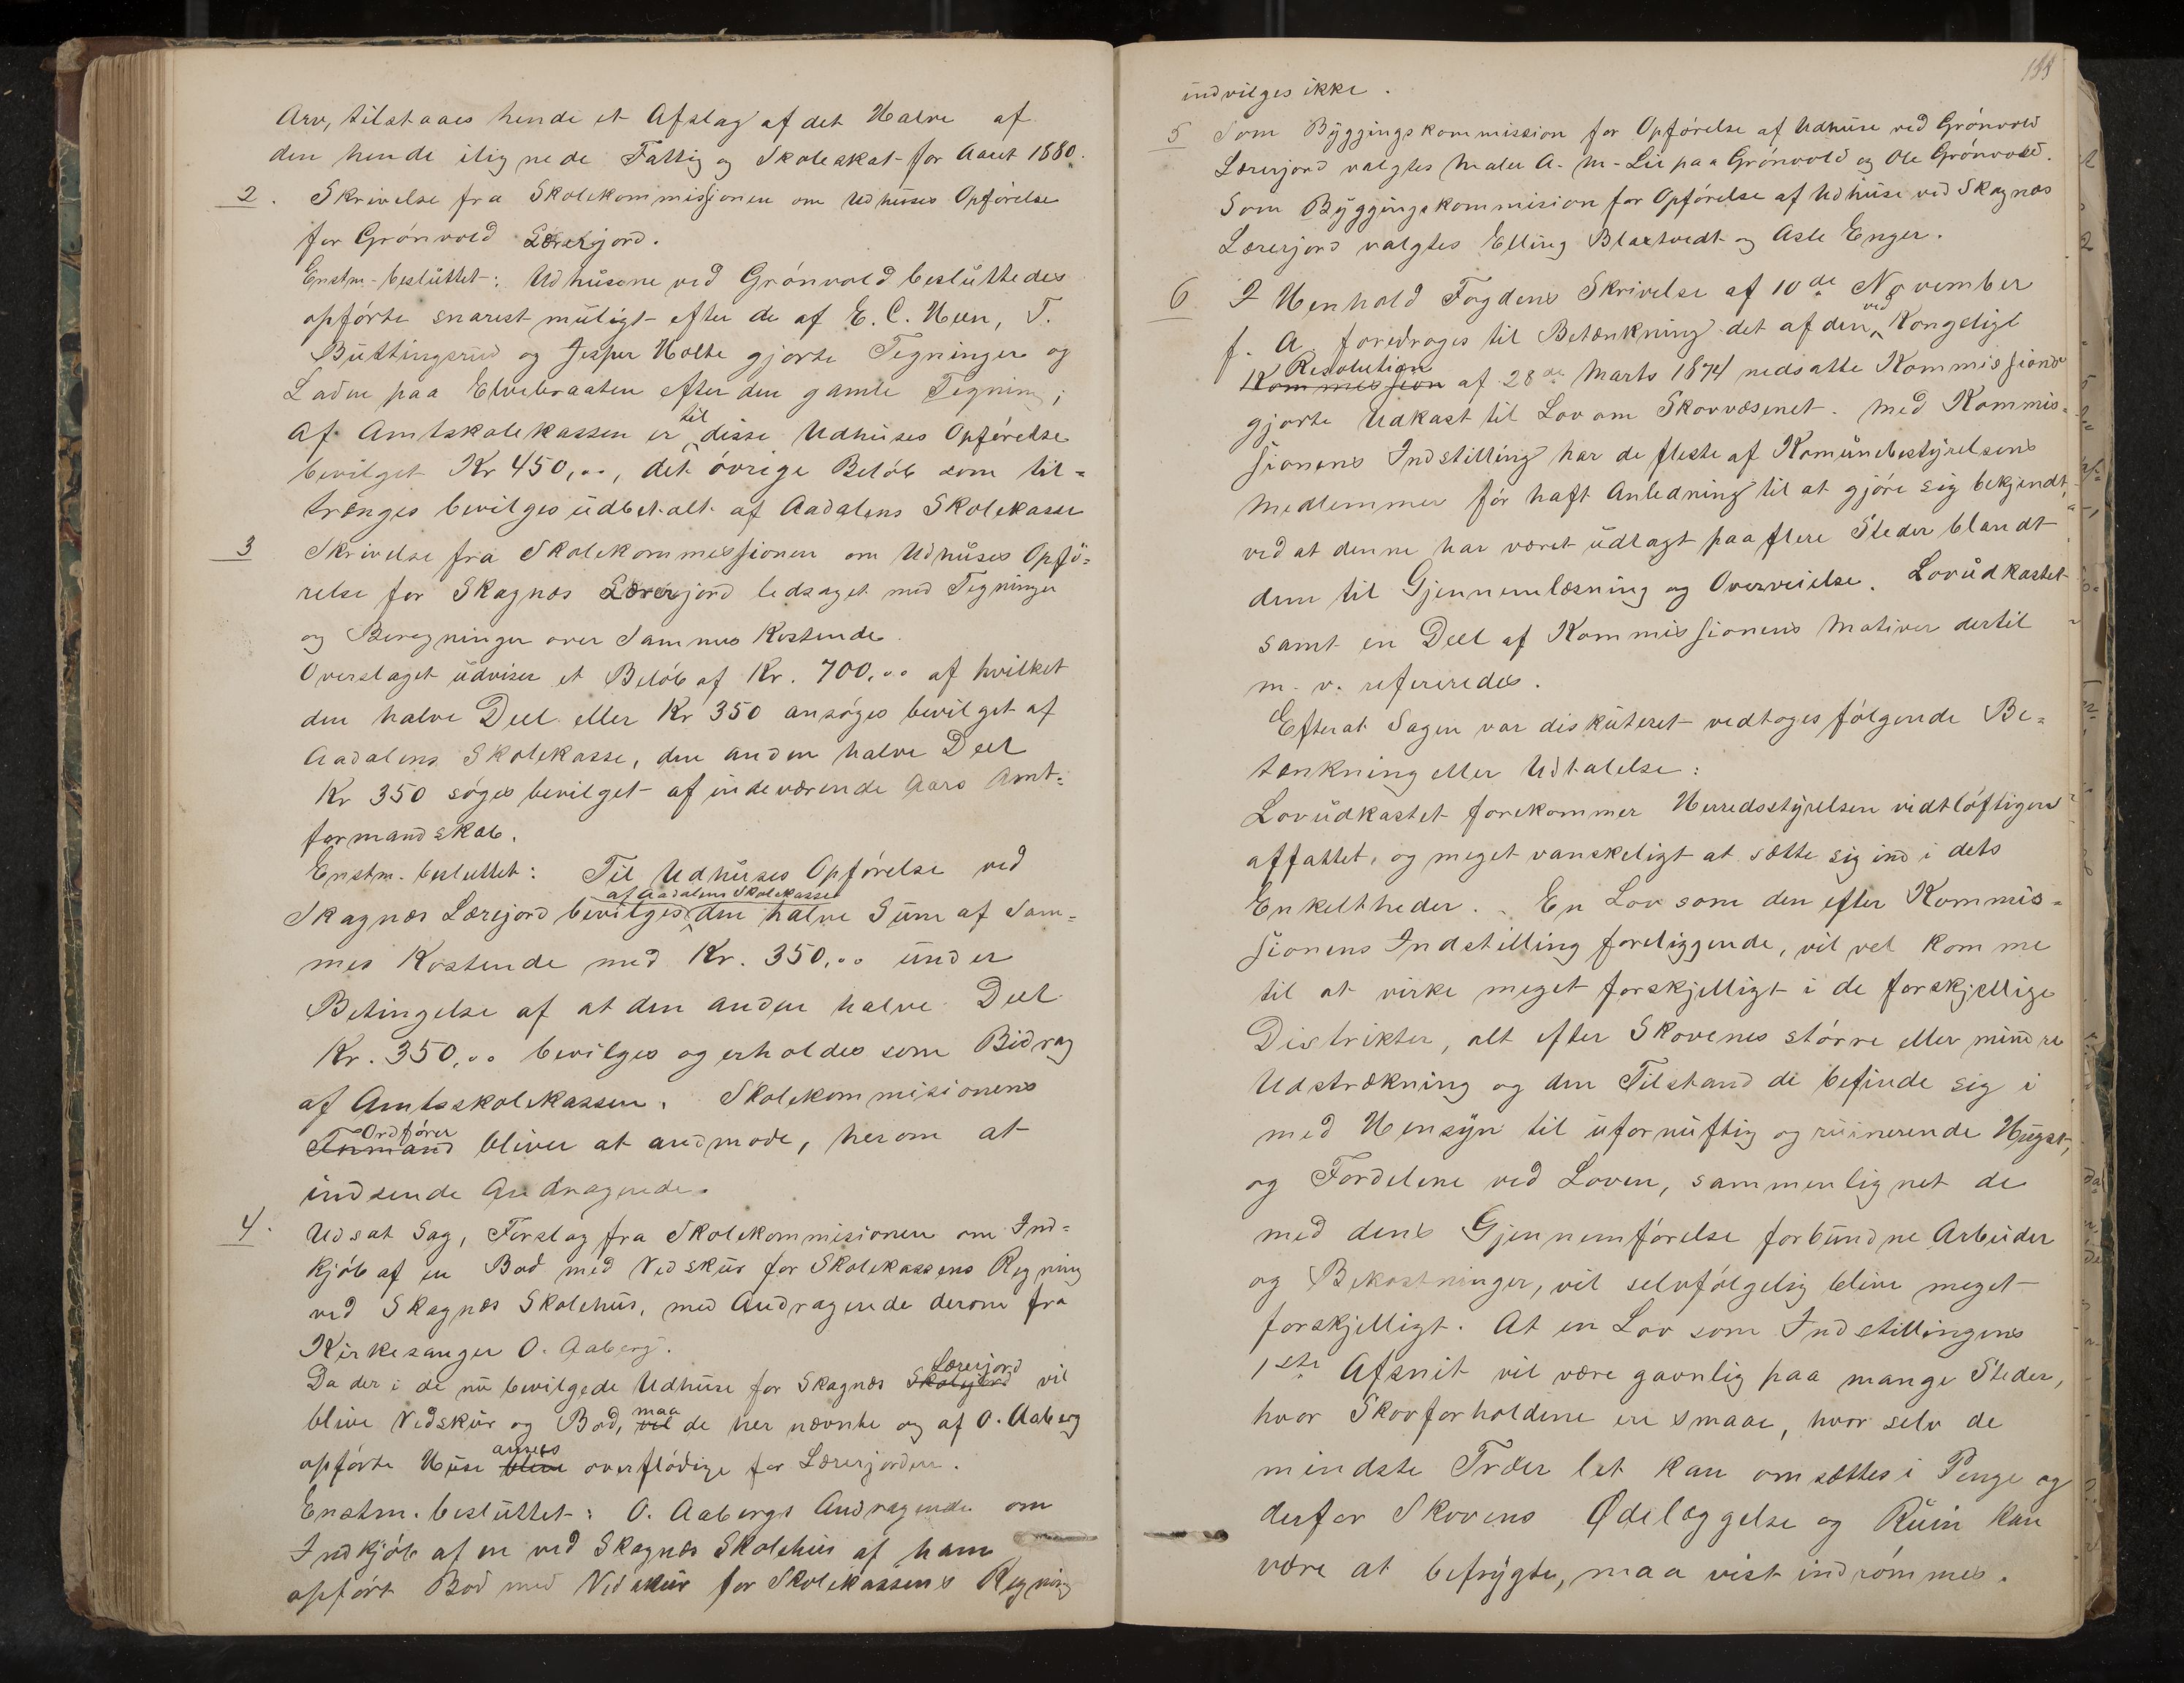 Arv, tilstaaes hende et Afslag af det Halve af
den hende ilignede Fattig og Skoleskat for Aaret 1880.
2. Skrivelse fra Skolekommissionen om Udhuses Opførelse
for Grønvold Lærerjord.
Enstm. besluttet: Udhusene ved Grønvold besluttedes
opførte snarest muligt efter de af E. C. Huen, T.
Buttingsrud og Jesper Holte gjorte Tegninger og
Laden paa Elvebraaten efter den gamle Tegning;
Af Amtskolekassen er til disse Udhuses Opførelse
bevilget Kr 450,00, det øvrige Beløb som til-
trænges bevilges udbetalt af Aadalens Skolekasse
3 Skrivelse fra Skolekommissionen om Udhuses Opfø-
relse for Skagnæs Lærerjord ledsaget med Tegninger
og Beregninger over Sammes Kostende.
Overslaget udviser et Beløb af Kr. 700,00 af hvilket
den halve Deel eller Kr 350 ansøges bevilget af
Aadalens Skolekasse, den anden halve Deel
Kr 350 søges bevilget af indeværende Aars Amt-
formandskab.
Enstm. besluttet: Til Udhuses Opførelse ved
Skagnæs Lærejord bevilges af Aadalens Skolekasse den halve Sum af Sam-
mes Kostende med Kr. 350,00 under
Betingelse af at den anden halve Deel
Kr. 350,00 bevilges og erholdes som Bidrag
af Amtsskolekassen. Skolekommisionens
Formand Ordfører bliver at andmode, herom at
indsende Andragende.
4. Udsat Sag, Forslag fra Skolekommisionen om Ind-
kjøb af en Bod med Vedskur for Skolekassens Regning
ved Skagnæs Skolehus, med Andragende derom fra
Kirkesanger O. Aaberg.
Da der i de nu bevilgede Udhuse for Skagnæs Skolejord Lærerjord vil
blive Vedskur og Bod, vil maa de her nævnte og af O. Aaberg
opførte Huse blive ansees overflødige for Lærerjorden.
Enstm. besluttet: O. Aabergs Andragende om
Indkjøb af en ved Skagnæs Skolehus af ham
opført Bod med Vedskur for Skolekassens Regning
188
indvilges ikke.
5 Som Byggingskommission for Opførelse af Udhuse ved Grønvold
Lærerjord valgtes Maler A. M. Lie paa Grønvold og Ole Grønvold.
Som Byggingskommision for Opførelse af Udhuse ved Skagnæs
Lærerjord valgtes Elling Blaxtvedt og Asle Enger.
6 I Henhold Fogdens Skrivelse af 10de November
f. A. foredroges til Betænkning det af den ved Kongeligt
Kommission Resolution af 28de Marts 1874 nedsatte Kommissions
gjorte Udkast til Lov om Skovvæsenet. Med Kommis-
sionens Indstilling har de fleste af Komunebestyrelsens
Medlemmer før haft Anledning til at gjøre sig bekjendt,
ved at denne har været udlagt paa flere Steder blandt
dem til Gjennemlæsning og Overveielse. Lovudkastet
samt en Deel af Kommissionens Motiver dertil
m. v. refereredes.
Efterat Sagen var diskuteret vedtoges følgende Be-
tænkning eller Udtalelse:
Lovudkastet forekommer Herredsstyrelsen vidtløftigen
affattet, og meget vanskeligt at sætte sig ind i dets
Enkeltheder. En Lov som den efter Kommis-
sionens Indstilling foreliggende, vil vel komme
til at virke meget forskjelligt i de forskjellige
Distrikter, alt efter Skovenes større eller mindre
Udstrækning og den Tilstand de befinde sig i
med Hensyn til ufornuftig og ruinerende Hugst,
og Fordelene ved Loven, sammenlignet de
med dens Gjennemførelse forbundne Arbeider
og Bekostninger, vil selvfølgelig blive meget
forskjelligt. At en Lov som Indstillingens
1ste Afsnit vil være gavnlig paa mange Steder,
hvor Skovforholdene ere smaae, hvor selv de
mindste Træer let kan omsættes i Penge og
derfor Skovens Ødelæggelse og Ruin kan
være at befrygte, maa vist indrømmes.